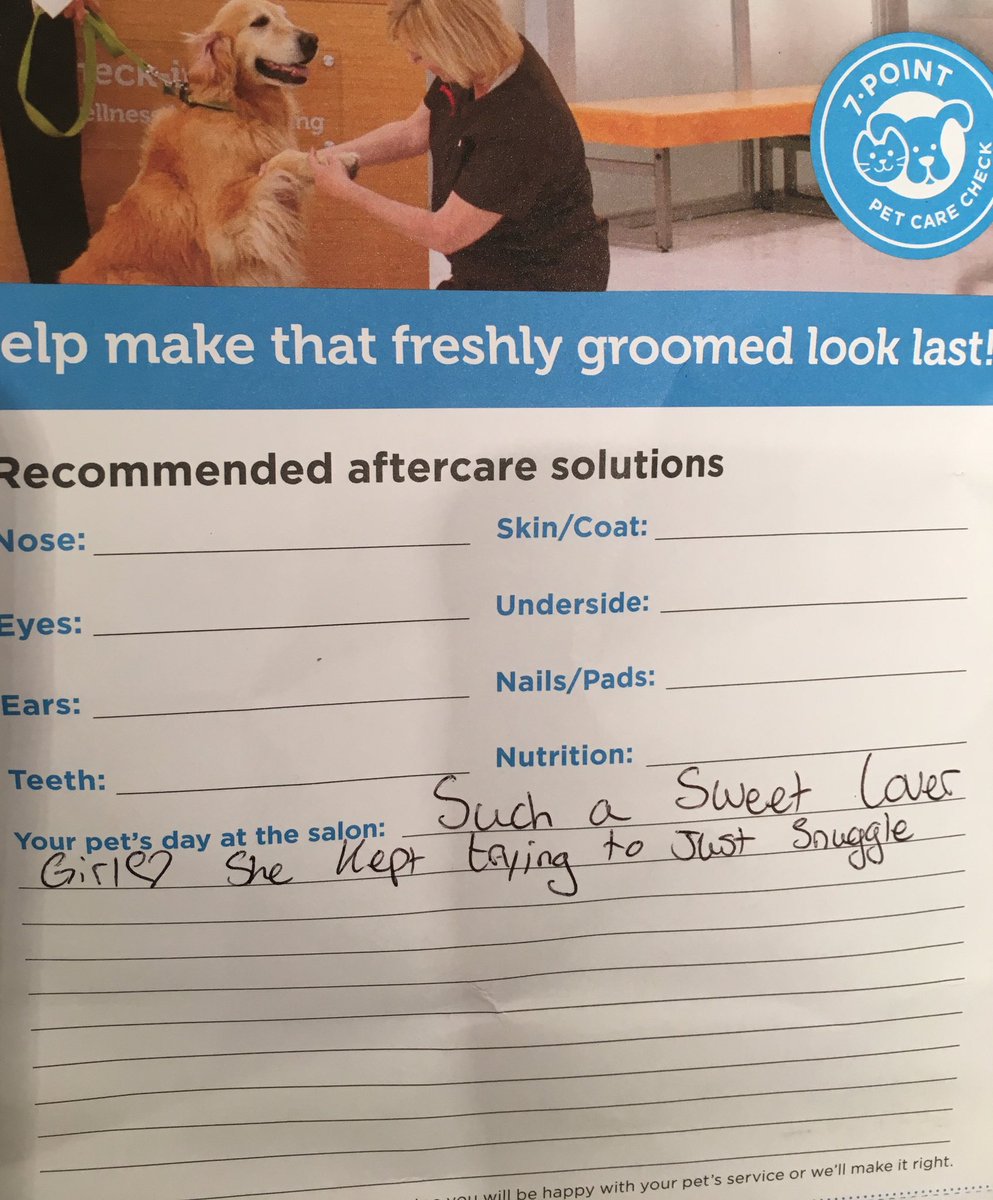 eck-i
ellness
ng
7-POINT
PET CARE CHECK
elp make that freshly groomed look last!
Recommended aftercare solutions
Nose:
Skin/Coat:
Eyes:
Underside:
Ears:
Nails/Pads:
Teeth:
Nutrition:
Your pet's day at the salon: Such a Sweet Lover
Girl♡ She Kept trying to Just Snuggle
you will be happy with your pet's service or we'll make it right.